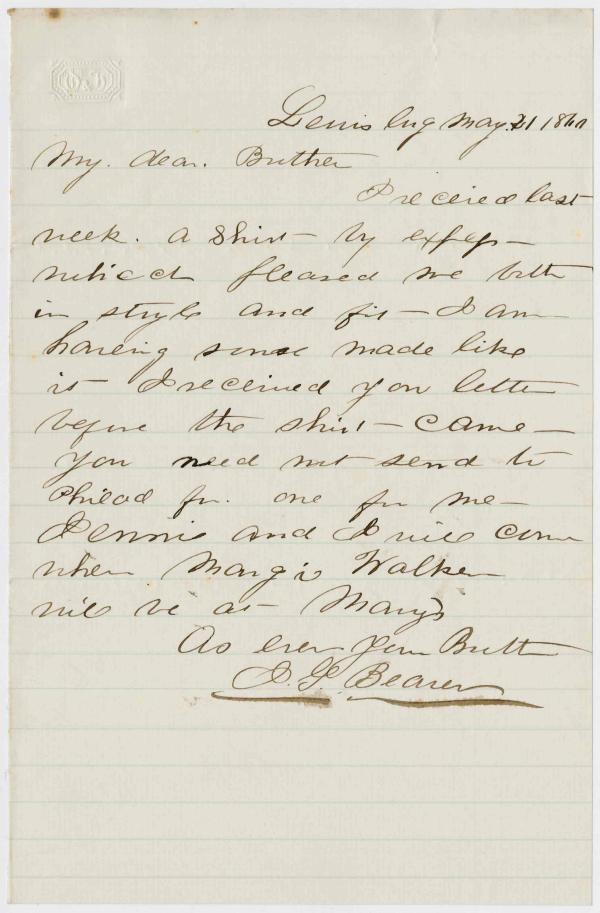 Lewisburg May 21 186
My. dear. Brother
I received last
week. a Shirt – by express –
which pleased me both
in style and fit – I am
having some made like
it I received you letter
before the shirt – came –
you need not send to
Philad for. one for me –
Jennie and I will come
when Margie Walker
will be at – Marys
As ever your Brother
J. G. Beaver